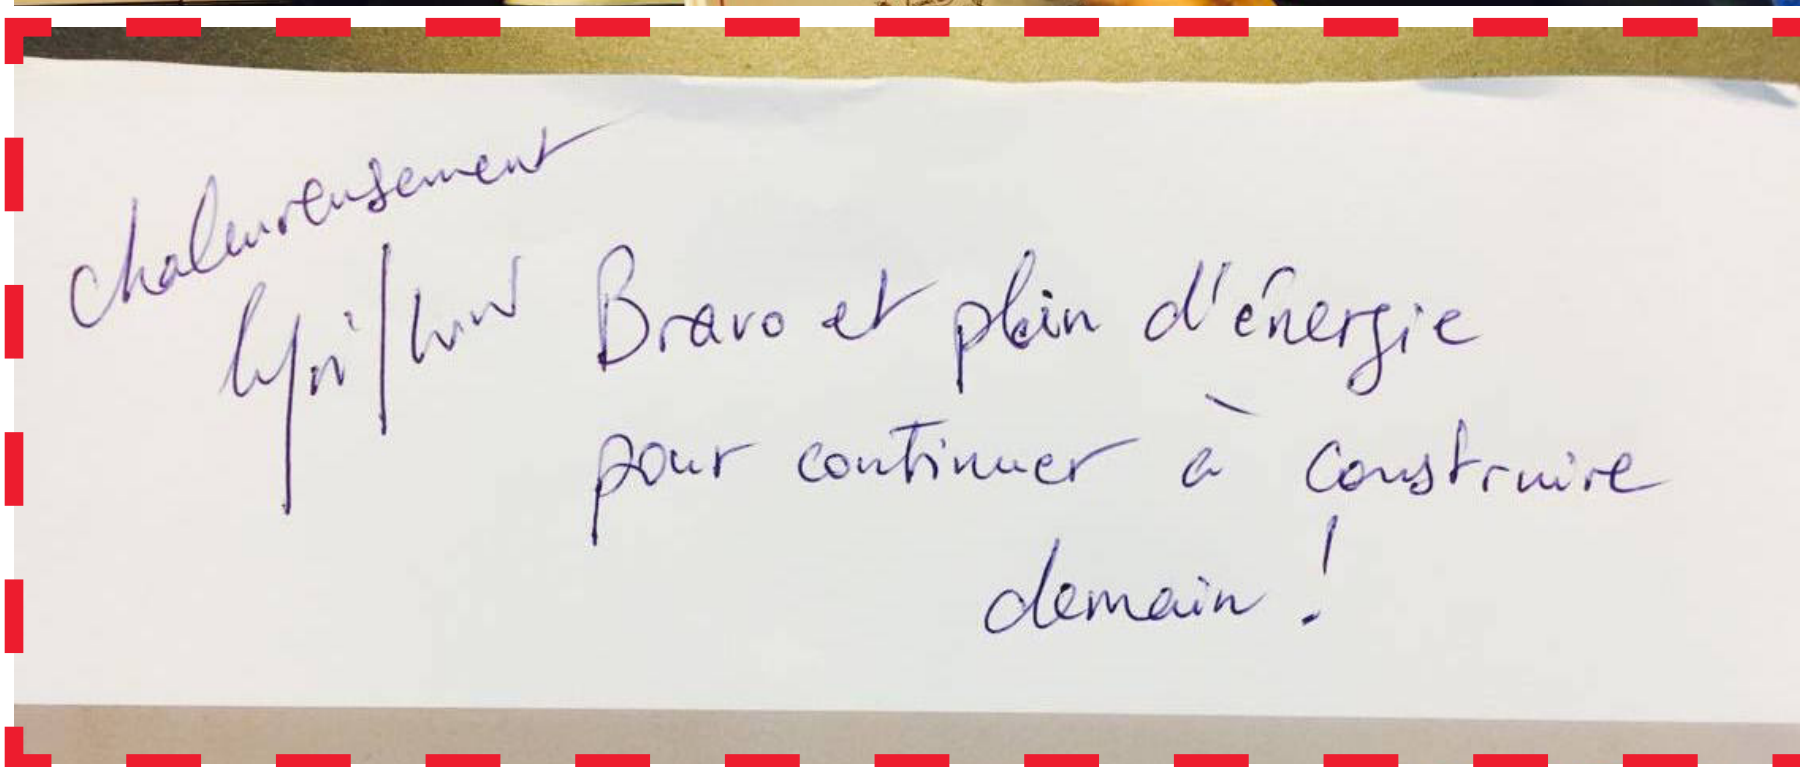 chaleureusement
Bravo et plein d'énergie
pour continuer à construire
demain !